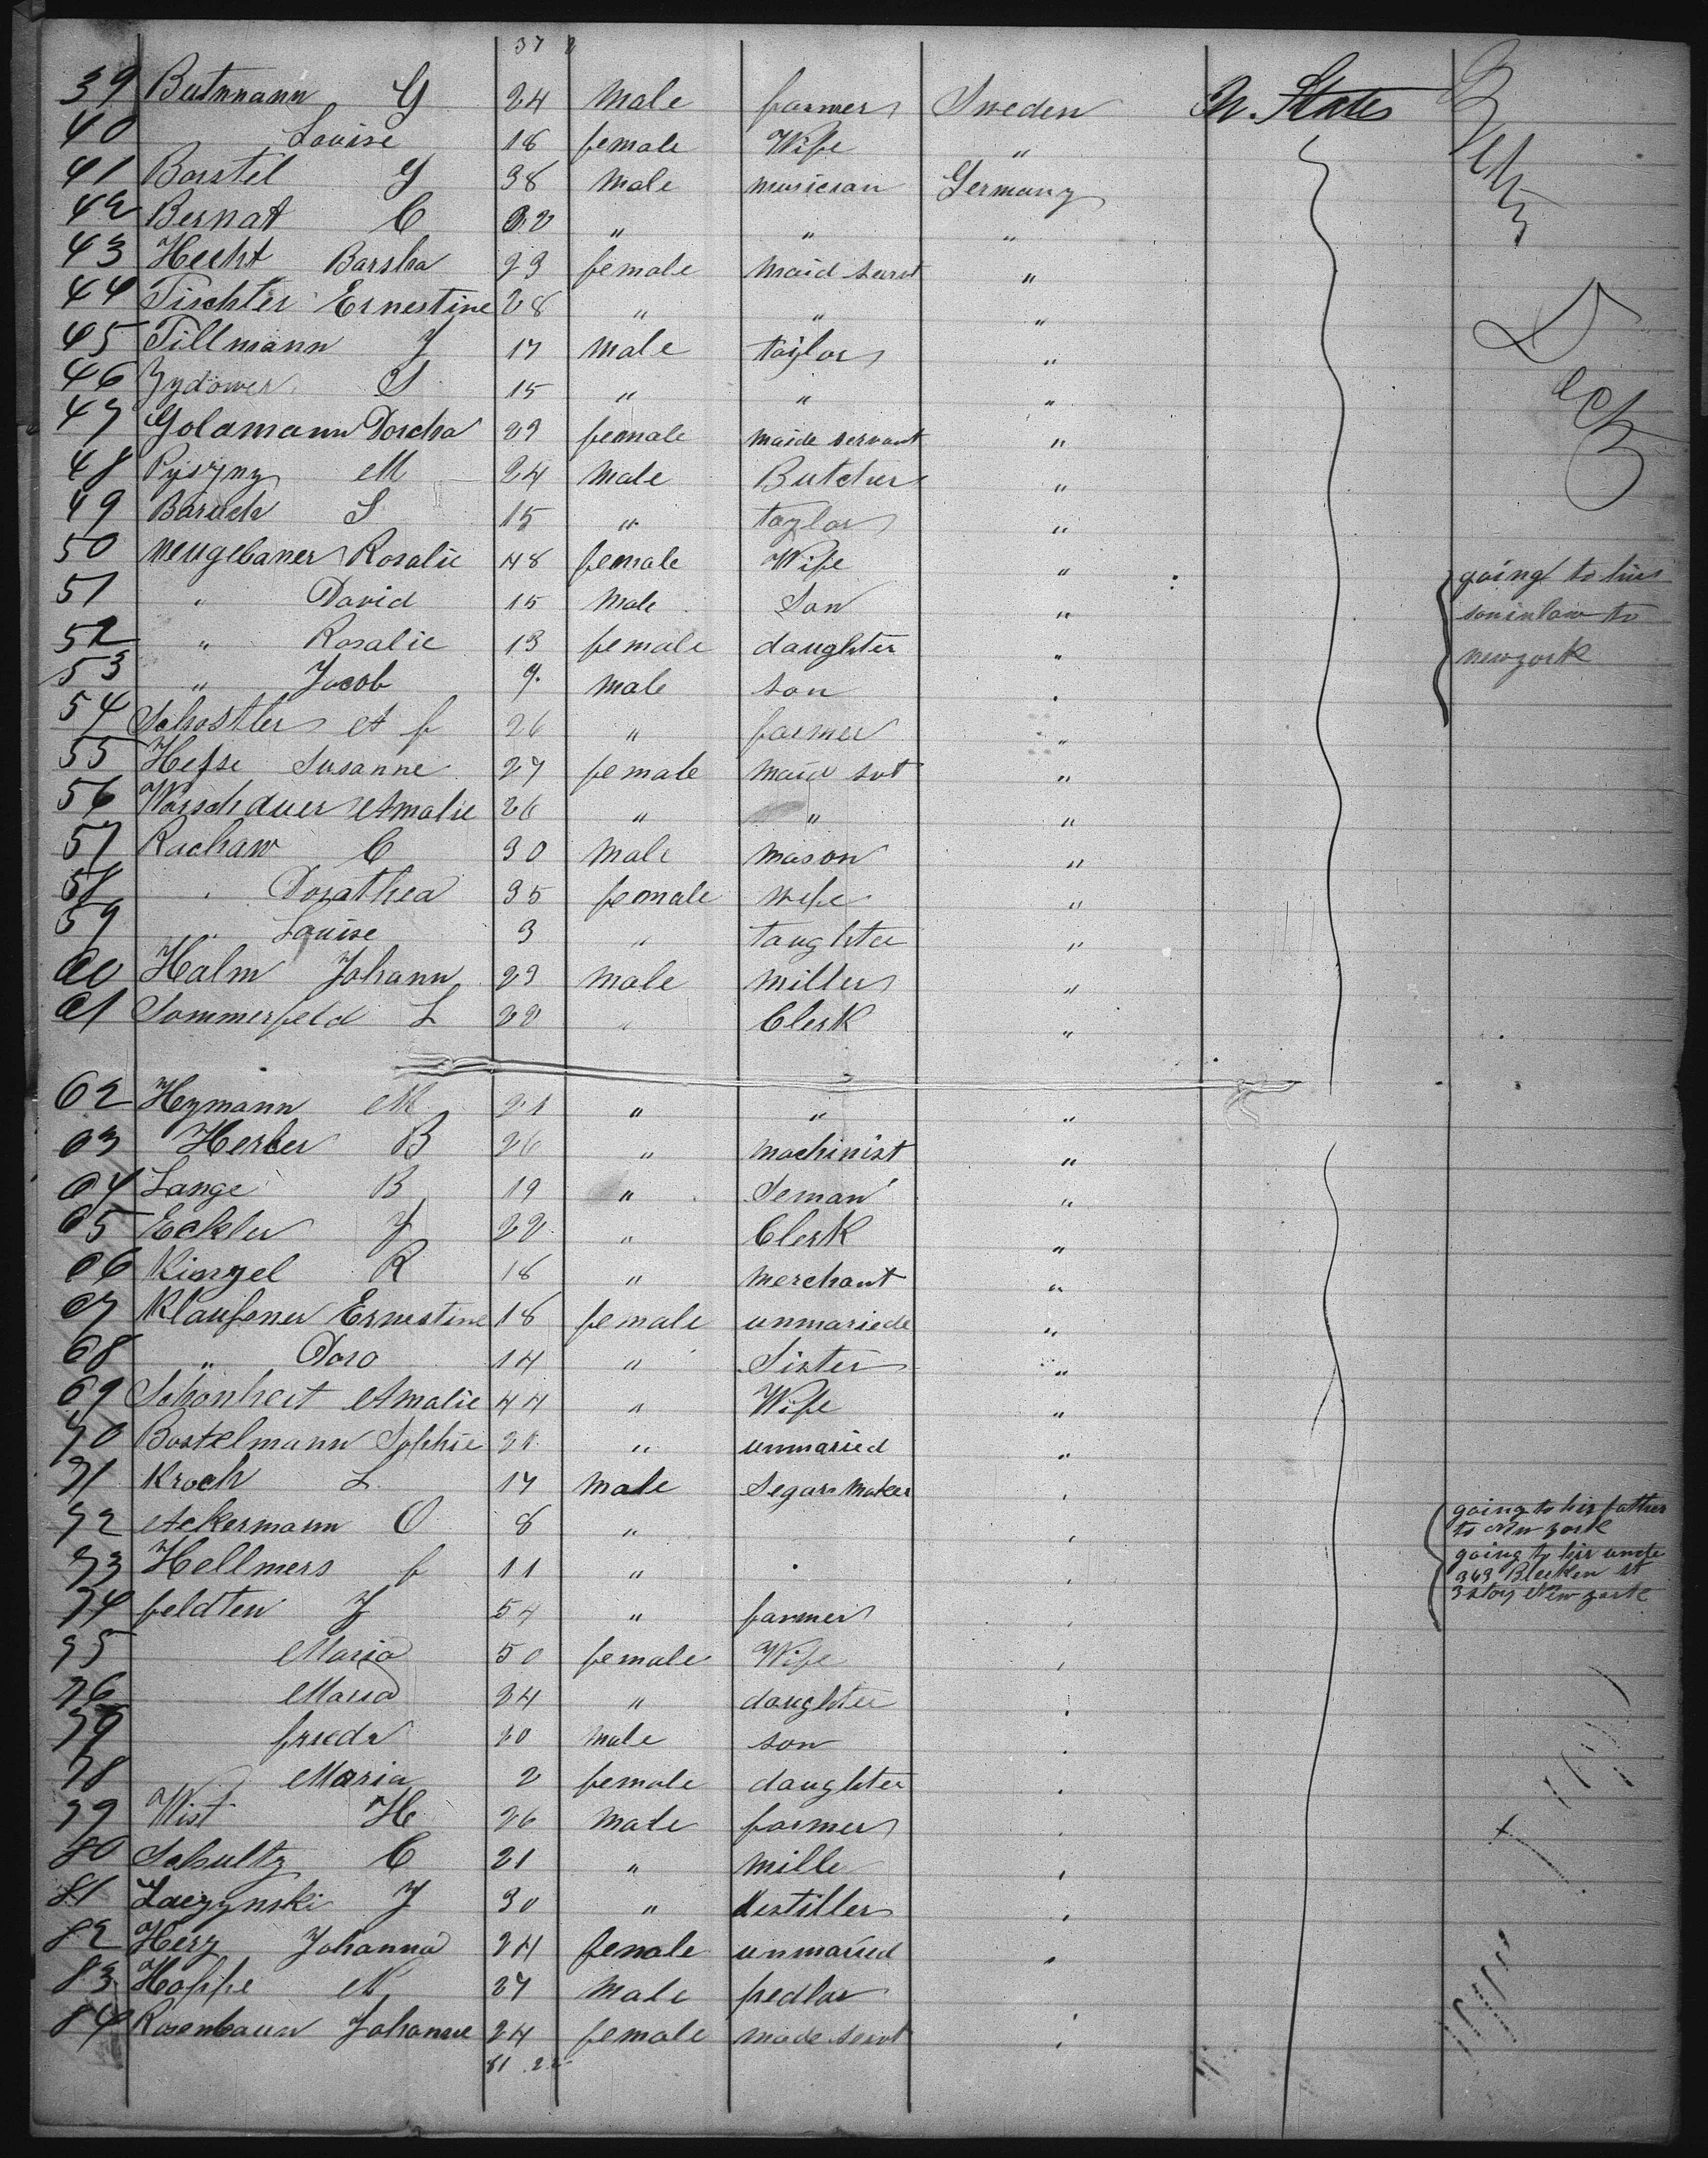 37
39 Butnmann G 24 Male farmer Sweden U. States
40 Louise 18 female Wife "
41 Borstel G 38 Male musician Germany
42 Bernat C " " "
43 Hecht Barsha 23 female Maid servt "
44 Tischter Ernestine 28 " " "
45 Tillmann J 17 Male taylor "
46 Zydower S 15 " " "
47 Golamann Dorcha 29 female maide servant "
48 M 24 Male Butcher "
49 Baruch S 15 " taylor "
50 Neugebaner Rosalie 48 female Wife " going to his
51 " David 15 Male Son " soninlaw to
52 " Rosalie 13 female daughter " newyork
53 " Jacob 9 Male son "
54 Schostler A f 26 " farmer "
55 Hesse Susanne 27 female Maid svt "
56 Warschauer Amalie 26 " " "
57 Rachaw C 30 Male Mason "
58 " Dorathea 35 female wife "
59 " Louise 3 " taughter "
60 Halm Johann 23 Male Miller "
61 Sommerfeld L 22 " Clerk "
62 Heymann M 21 " " "
63 Herber B 26 " Machinist "
64 Lange B 19 " Seman "
65 Eckler J 22 " Clerk "
66 Kinzel R 18 " Merchant "
67 Klausener Ernestine 18 female unmariede "
68 " Doro 14 " Sister "
69 Schonheit Amalie 44 " Wife "
70 Bostelmann Sophie 21 " unmaried "
71 Kroch L 17 Male Segar Maker "
72 Ackermann O 8 " " going to his father
to New york
73 Hellmers f 11 " " going to his uncle
363 Blecken st
74 feldten J 54 " farmer " 3 story New york
75 Maria 50 female Wife "
76 Maria 24 " daughter "
77 friedr 20 Male son "
78 Maria 2 female daughter "
79 Wist H 26 Male farmer "
80 Schultz C 21 " Mille "
81 Laczynski J 30 " distiller "
82 Herz Johanna 24 female unmaried "
83 Hoppe N 27 Male pedlar "
84 Rosenbaun Johanne 24 female made servt "
Betz
Deck